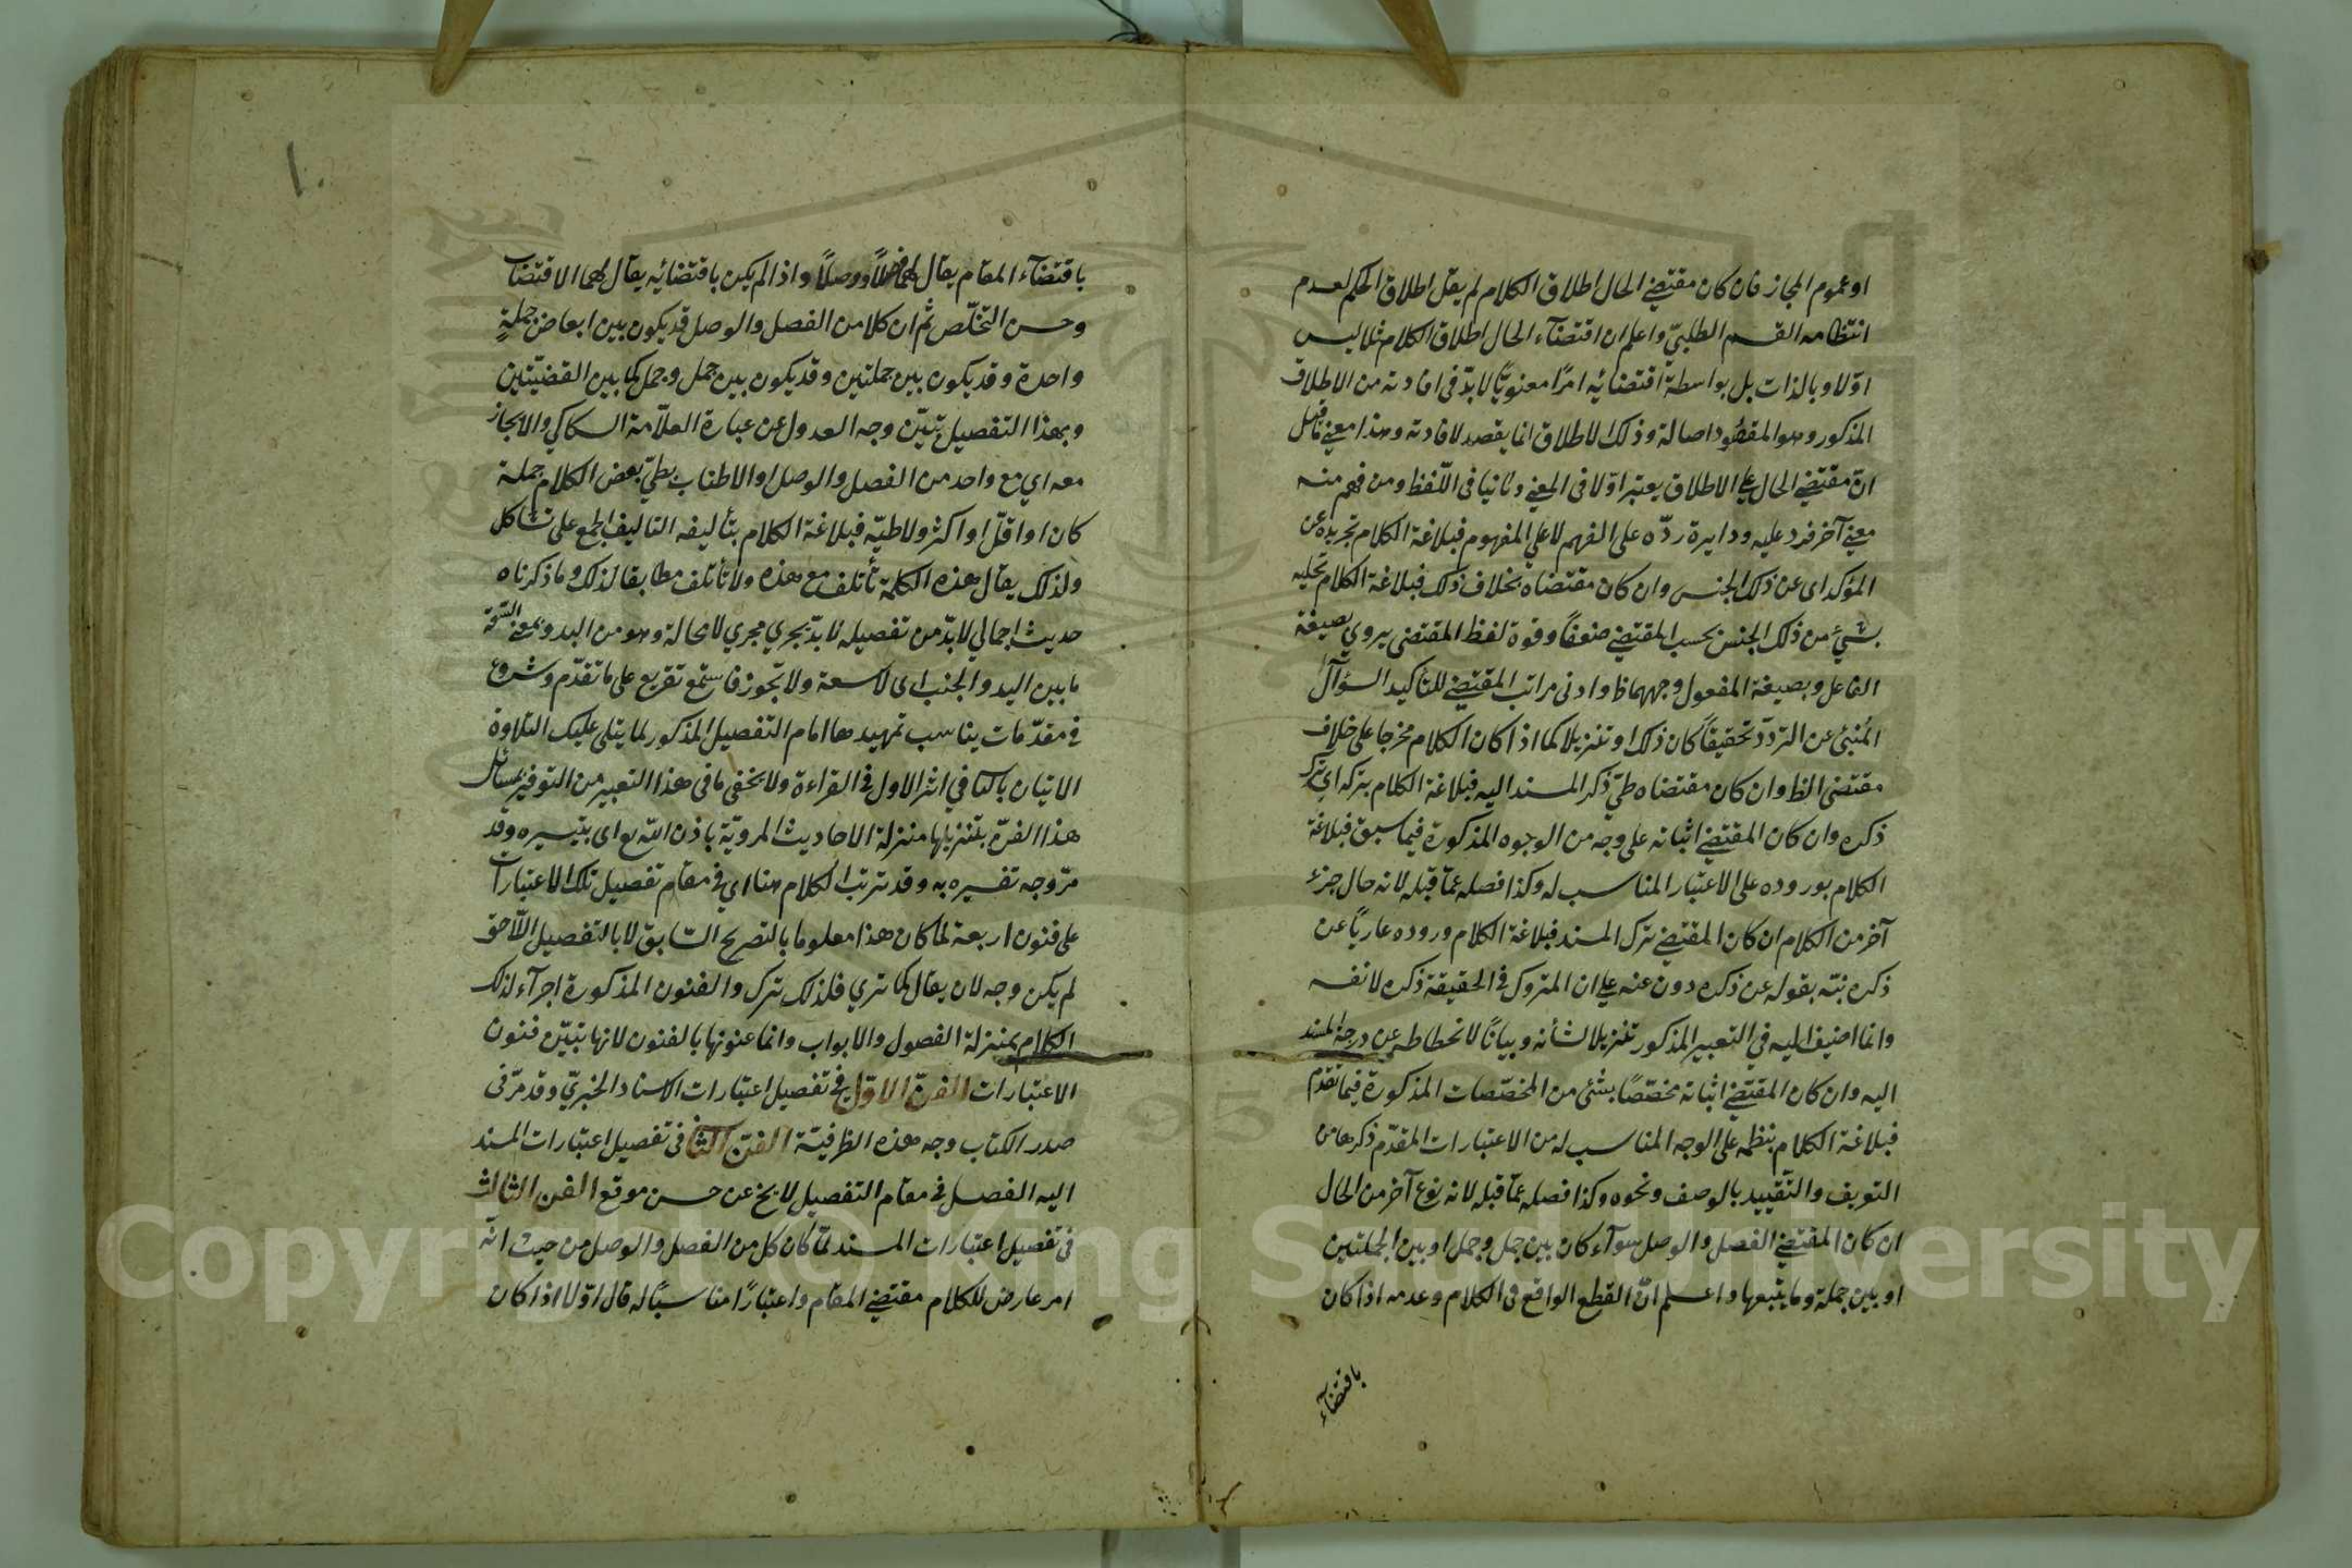 او عموم المجاز فان كان مقتضى الحال اطلاق الكلام لم يقل اطلاق الحكم لعدم
انتظامه القسم الطلبيّ واعلم ان اقتضآء الحال اطلاق الكلام مثلا ليس
اوّلا وبالذات بل بواسطة اقتضائه امرًا معنويًّا لا بدّ فى افادته من الاطلاق
المذكور وهو المقصود اصالة وذلك الاطلاق انما يقصد لافادته وهذا معنى ما قيل
انّ مقتضى الحال على الاطلاق يعتبر اوّلا فى المعنى وثانيا فى اللّفظ ومن فهم منه
معنى آخر فرد عليه ودايرة ردّه على الفهم لا على المفهوم فبلاغة الكلام تجريده عن
المؤكد اى عن ذلك الجنس وان كان مقتضاه بخلاف ذلك فبلاغة الكلام تحليه
بشيء من ذلك الجنس بحسب المقتضى ضعفًا وقوة لفظ المقتضى يروي بصيغة
الفاعل وبصيغة المفعول وجههما ظ وادنى مراتب المقتضى للتأكيد السؤآل
المُنبئ عن التردّد تحقيقًا كان ذلك او تنزيلا كما اذا كان الكلام مخرجا على خلاف
مقتضى الظ وان كان مقتضاه طيّ ذكر المسند اليه فبلاغة الكلام بتركه اي ترك
ذكره وان كان المقتضى اثباته على وجه من الوجوه المذكورة فيما سبق فبلاغة
الكلام بوروده على الاعتبار المناسب له وكذا فصله عمّا قبله لانه حال جزء
آخر من الكلام ان كان المقتضى ترك المسند فبلاغة الكلام وروده عاريًا عن
ذكره نبّه بقوله عن ذكره دون عنه على ان المتروك فى الحقيقة ذكره لا نفسه
وانما اضيف اليه في التعبير المذكور تنزيلا لشأنه وبيانًا لانحطاطه عن درجة المسند
اليه وان كان المقتضى اثباته مخصّصًا بشئ من المخصّصات المذكورة فيما تقدم
فبلاغة الكلام بنظمه على الوجه المناسب له من الاعتبارات المقدّم ذكرها من
التعريف والتّقييد بالوصف ونحوه وكذا فصله عمّا قبله لانه نوع آخر من الحال
ان كان المقتضى الفصل والوصل سوآء كان بين جمل وجمل او بين الجملتين
او بين جملة وما يتبعها واعلم انّ القطع الواقع فى الكلام وعدمه اذا كان
باقتضآء
١٠
باقتضآء المقام يقال لهما فصلاً ووصلاً واذا لم يكن باقتضائه يقال لهما الاقتضاب
وحسن التخلّص ثم ان كلا من الفصل والوصل قد يكون بين ابعاض جملةٍ
واحدة وقد يكون بين جملتين وقد يكون بين جمل وجمل كما بين القضيّتين
وبهذا التفصيل تبيّن وجه العدول عن عبارة العلاّمة السكاكي والايجاز
معه اي مع واحد من الفصل والوصل او الاطناب بطيّ بعض الكلام جملة
كان او اقلّ او اكثر ولا طيّه فبلاغة الكلام بتأليفه التاليف الجمع على تشاكل
ولذلك يقال هذه الكلمة تأتلف مع هذه ولا تأتلف مطابقا لذلك وما ذكرناه
حديث اجمالي لا بدّ من تفصيله لا بدّ يجري مجري لا محالة وهو من البد وبمعنى السّعة
ما بين اليد والجنب اى لا سعة ولا تجوز فاستمع تفريع على ما تقدّم وشروع
في مقدّمات يناسب تمهيدها امام التفصيل المذكور لما يتلى عليك التلاوة
الاتيان بالثاني اثر الاول في القراءة ولا يخفى ما فى هذا التعبير من التوفير لمسائل
هذا الفنّ بتنزيلها منزلة الاحاديث المرويّة باذن الله تع اى بتيسيره وقد
مرّ وجه تفسيره به وقد ترتب الكلام هنا اي في مقام تفصيل تلك الاعتبارات
على فنون اربعة لما كان هذا معلوما بالتصريح السّابق لا بالتفصيل اللّاحق
لم يكن وجه لان يقال كما تري فلذلك ترك والفنون المذكورة اجرآء لذلك
الكلام بمنزلة الفصول والابواب وانما عنونها بالفنون لانها تبيّن فنون
الاعتبارات الفنّ الاوّل في تفصيل اعتبارات الاسناد الخبريّ وقد مرّ فى
صدر الكتاب وجه هذه الظرفيّة الفنّ الثا فى تفصيل اعتبارات المسند
اليه الفصل فى مقام التفصيل لا يخ عن حسن موقع الفن الثالث
فى تفصيل اعتبارات المسند لمّا كان كل من الفصل والوصل من حيث انّه
امر عارض للكلام مقتضى المقام واعتبارًا مناسبًا له قال اوّلا اذا كان
Copyright © King Saud University